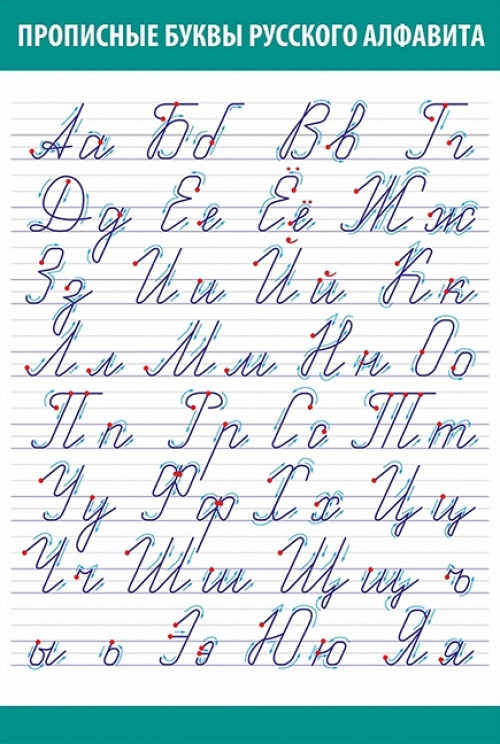 ПРОПИСНЫЕ БУКВЫ РУССКОГО АЛФАВИТА
Аа Бб Вв Гг
Дд Ее Ёё Жж
Зз Ии Йй Кк
Лл Мм Нн Оо
Пп Рр Сс Тт
Уу Фф Хх Цц
Чч Шш Щщ ъ
ы ь Ээ Юю Яя